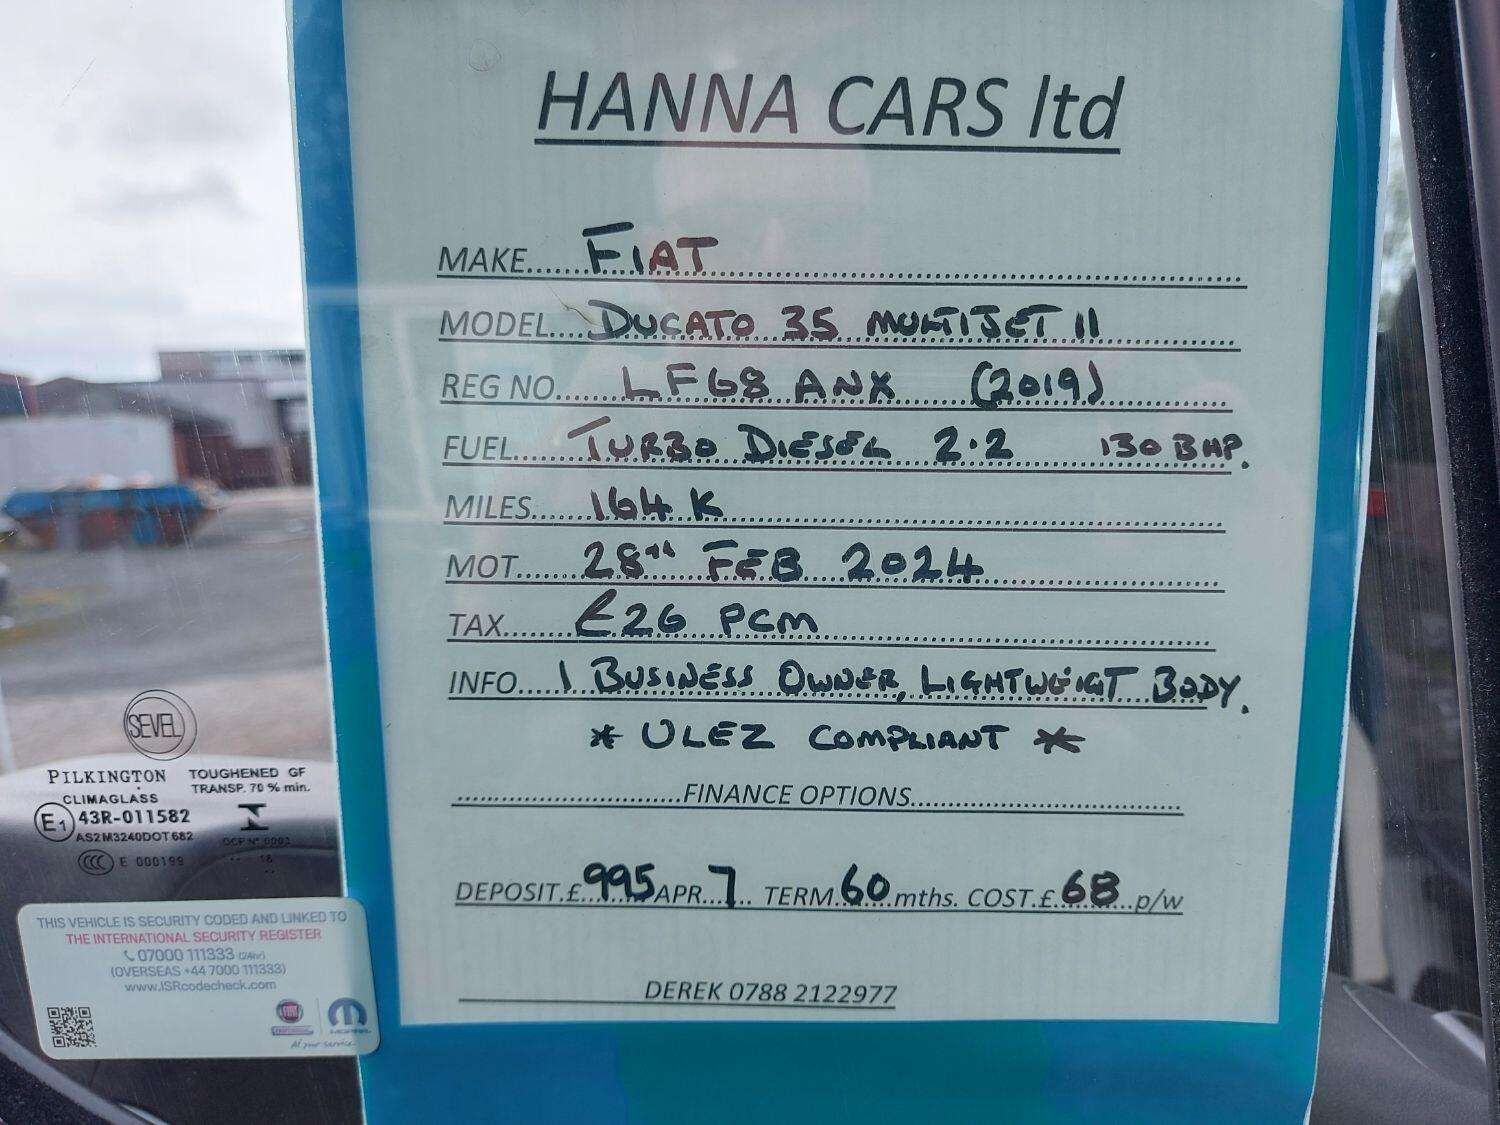 HANNA CARS ltd
MAKE......FIAT
MODEL....DUCATO 35 MULTIJET II
REG NO......LF68 ANX (2019)
FUEL......TURBO DIESEL 2.2 130 BHP.
MILES......164 K
MOT......28TH FEB 2024
TAX......£26 PCM
INFO....1 BUSINESS OWNER, LIGHTWEIGT BODY.
* ULEZ COMPLIANT *
FINANCE OPTIONS
DEPOSIT.£.995 APR.7 TERM.60.mths. COST.£.68.p/w
DEREK 0788 2122977
SEVEL
PILKINGTON TOUGHENED GF
TRANSP. 70 % min.
CLIMAGLASS
E1 43R-011582
AS2 M3240 DOT 682
CCC E 000199
18
THIS VEHICLE IS SECURITY CODED AND LINKED TO
THE INTERNATIONAL SECURITY REGISTER
07000 111333 (24hr)
(OVERSEAS +44 7000 111333)
www.ISRcodecheck.com
FIAT
MOPAR
At your service.